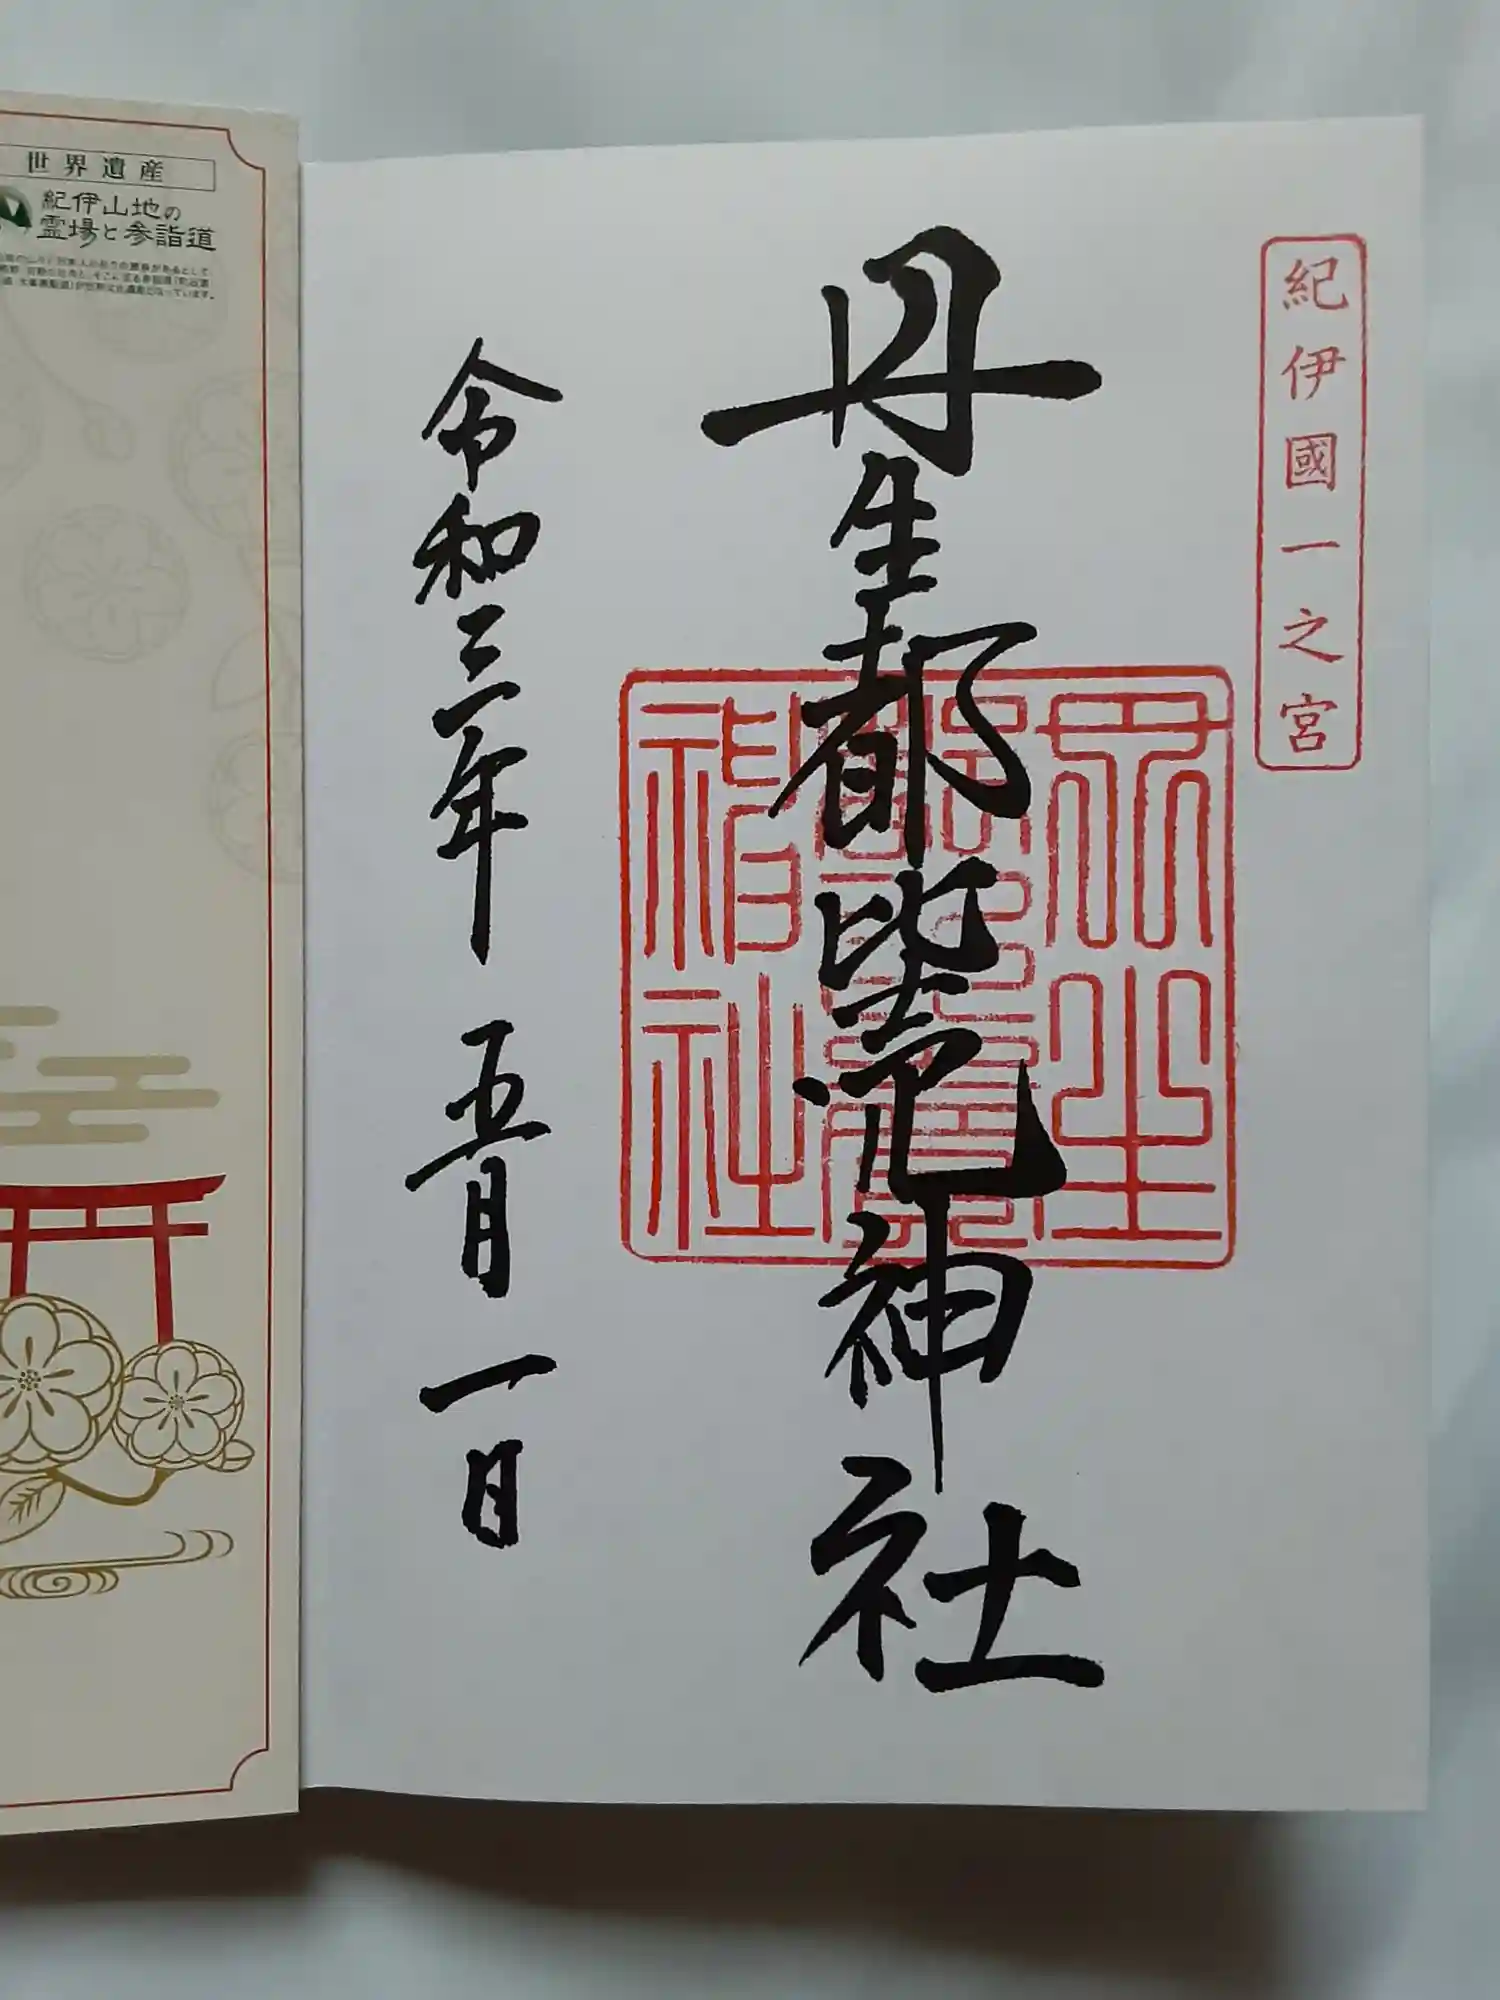 紀伊國一之宮
丹生都比売神社
丹生
都比賣
神社
令和三年 五月 一日
世界遺産
紀伊山地の
霊場と参詣道